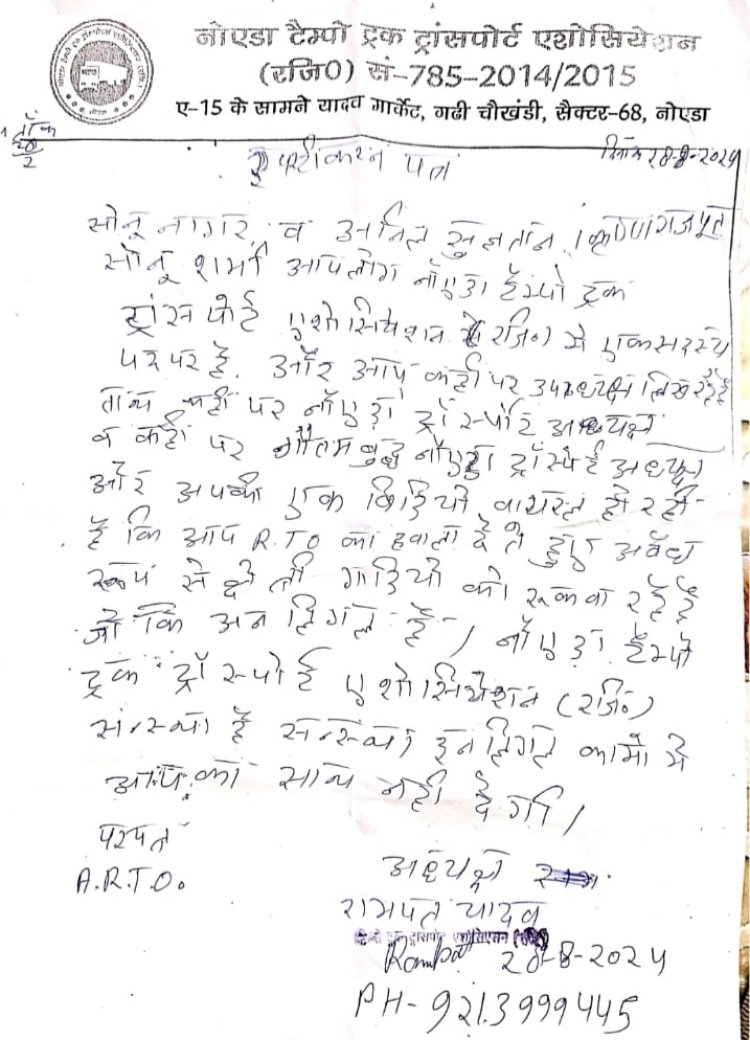 नोएडा टैम्पो ट्रक ट्रांसपोर्ट एशोसियेशन
(रजि0) सं-785-2014/2015
ए-15 के सामने यादव मार्केट, गढी चौखंडी, सैक्टर-68, नोएडा
दिनांक 28-8-2024
स्पष्टीकरन पत्र
सोनू नागर, व अनिल सुलतान, कृष्णा राजपूत
सोनू शर्मा आपलोग नोएडा टैम्पो ट्रक
ट्रांसपोर्ट एशोसियेशन (रजि०) मे एक सदस्य
पद पर है. और आप कही पर उपाध्यक्ष लिख रहे है
कही पर नोएडा ट्रांस्पोर्ट अध्यक्ष
व कही पर गौतम बुद्ध नोएडा ट्रांस्पोर्ट अध्यक्ष
और आपकी एक विडियो वायरल हो रही
है कि आप R.TO का हवाला देते हुए अवैध
रूप से गाडियो को रूकवा रहे है
जो कि अनलिगल है / नोएडा टैम्पो
ट्रक ट्रांस्पोर्ट एशोसियेशन (रजि०)
संस्था है संस्था इनलिगल कामो मे
आपका साथ नही देगी /
A.R.T.O.
अध्यक्ष
रामपत यादव
ट्रक ट्रांसपोर्ट एशोसिएसन
Rampat 28-8-2024
PH- 9213999445